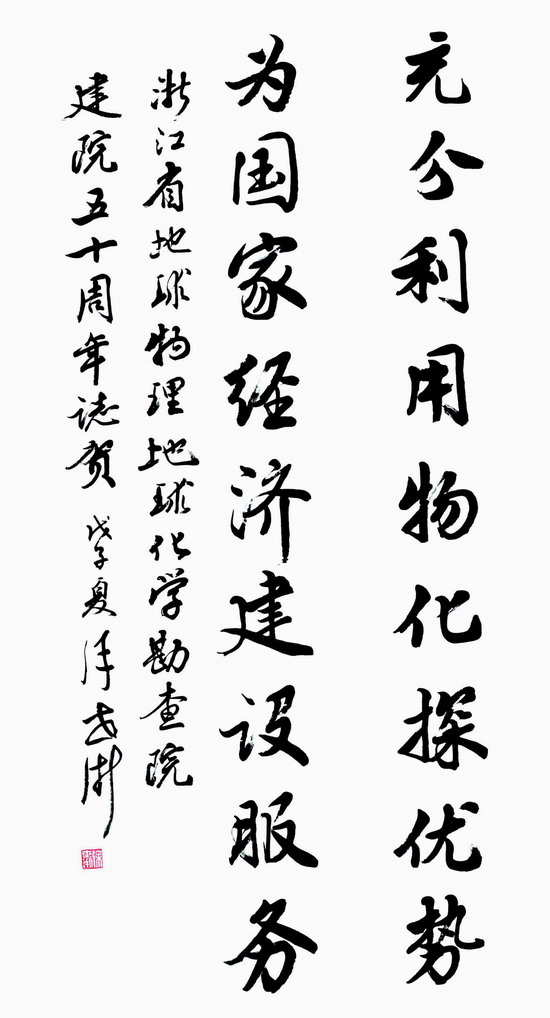 充分利用物化探优势
为国家经济建设服务
浙江省地球物理地球化学勘查院
建院五十周年誌贺 戊子夏